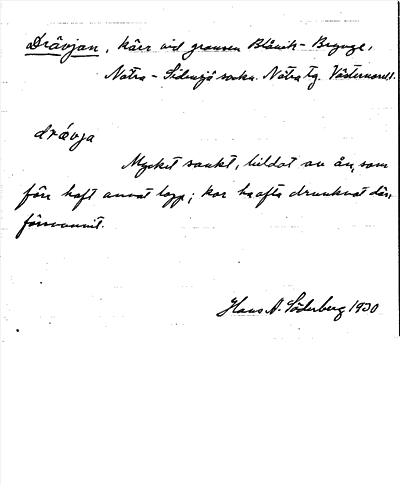 Drävjan, kärr vid gränsen Blåvik - Brynge,
Nätra - Sidensjö sockn. Nätra tg. Västernorrl.
drävja
Mycket sankt, bildat av ån, som
förr haft annat lopp; kor ha ofta drunknat där,
försvunnit.
Hans A. Söderberg 1930